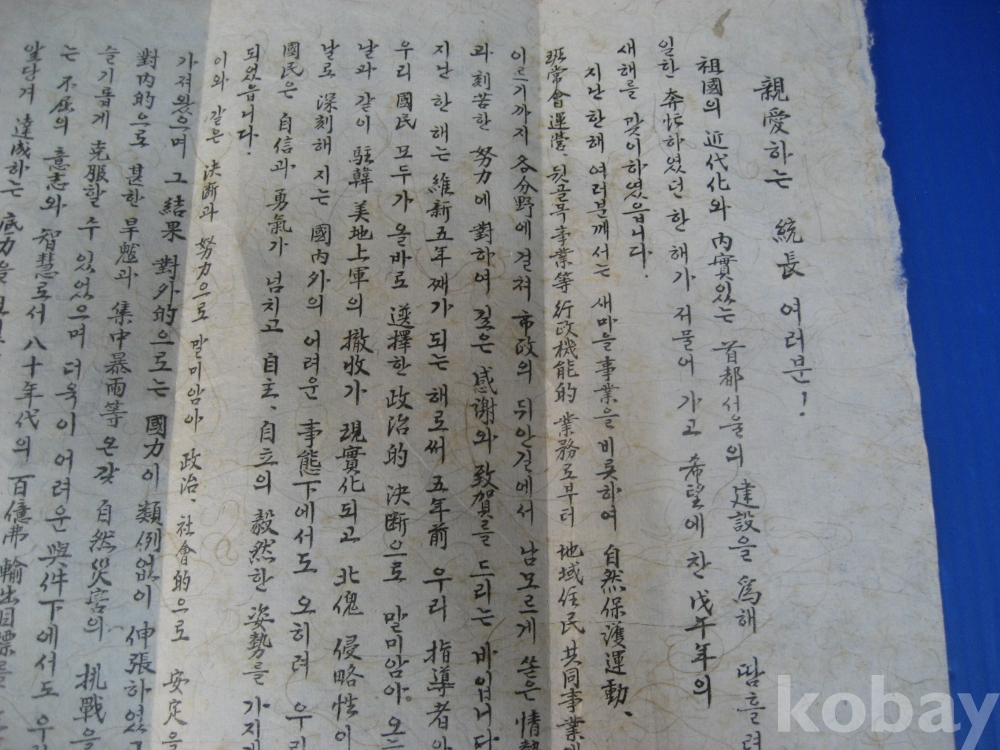 親愛하는 統長 여러분!
祖國의 近代化와 內實있는 首都서울의 建設을 爲해 땀흘려
일한 奔忙하였던 한해가 저물어 가고 希望에 찬 戊午年의
새해를 맞이하였읍니다.
지난한해 여러분께서는 새마을事業을 비롯하여 自然保護運動、
班常會運營、뒷골목事業等 行政機能的 業務로부터 地域住民 共同事業에
이르기까지 各分野에 걸쳐 市政의 뒤안길에서 남모르게 쏟은 情熱
과 刻苦한 努力에 對하여 깊은 感謝와 致賀를 드리는 바입니다
지난 한해는 維新五年째가 되는 해로써 五年前 우리 指導者와
우리國民 모두가 올바로 選擇한 政治的 決斷으로 말미암아 오늘
날과 같이 駐韓美地上軍의 撤收가 現實化되고 北傀 侵略性이
날로 深刻해 지는 國內外의 어려운 事態下에서도 오히려 우리
國民은 自信과 勇氣가 넘치고 自主、自立의 毅然한 姿勢를 가지게
되었읍니다.
이와 같은 決斷과 努力으로 말미암아 政治、社會的으로 安定을
가져왔으며 그 結果 對外的으로는 國力이 類例없이 伸張하였고
對內的으로 甚한 旱魃과 集中暴雨等 온갖 自然災害의 挑戰을
슬기롭게 克服할 수 있었으며 더욱이 어려운 與件下에서도 우리
는 不屈의 意志와 智慧로서 八十年代의 百億弗輸出目標를
앞당겨 達成하는 底力을